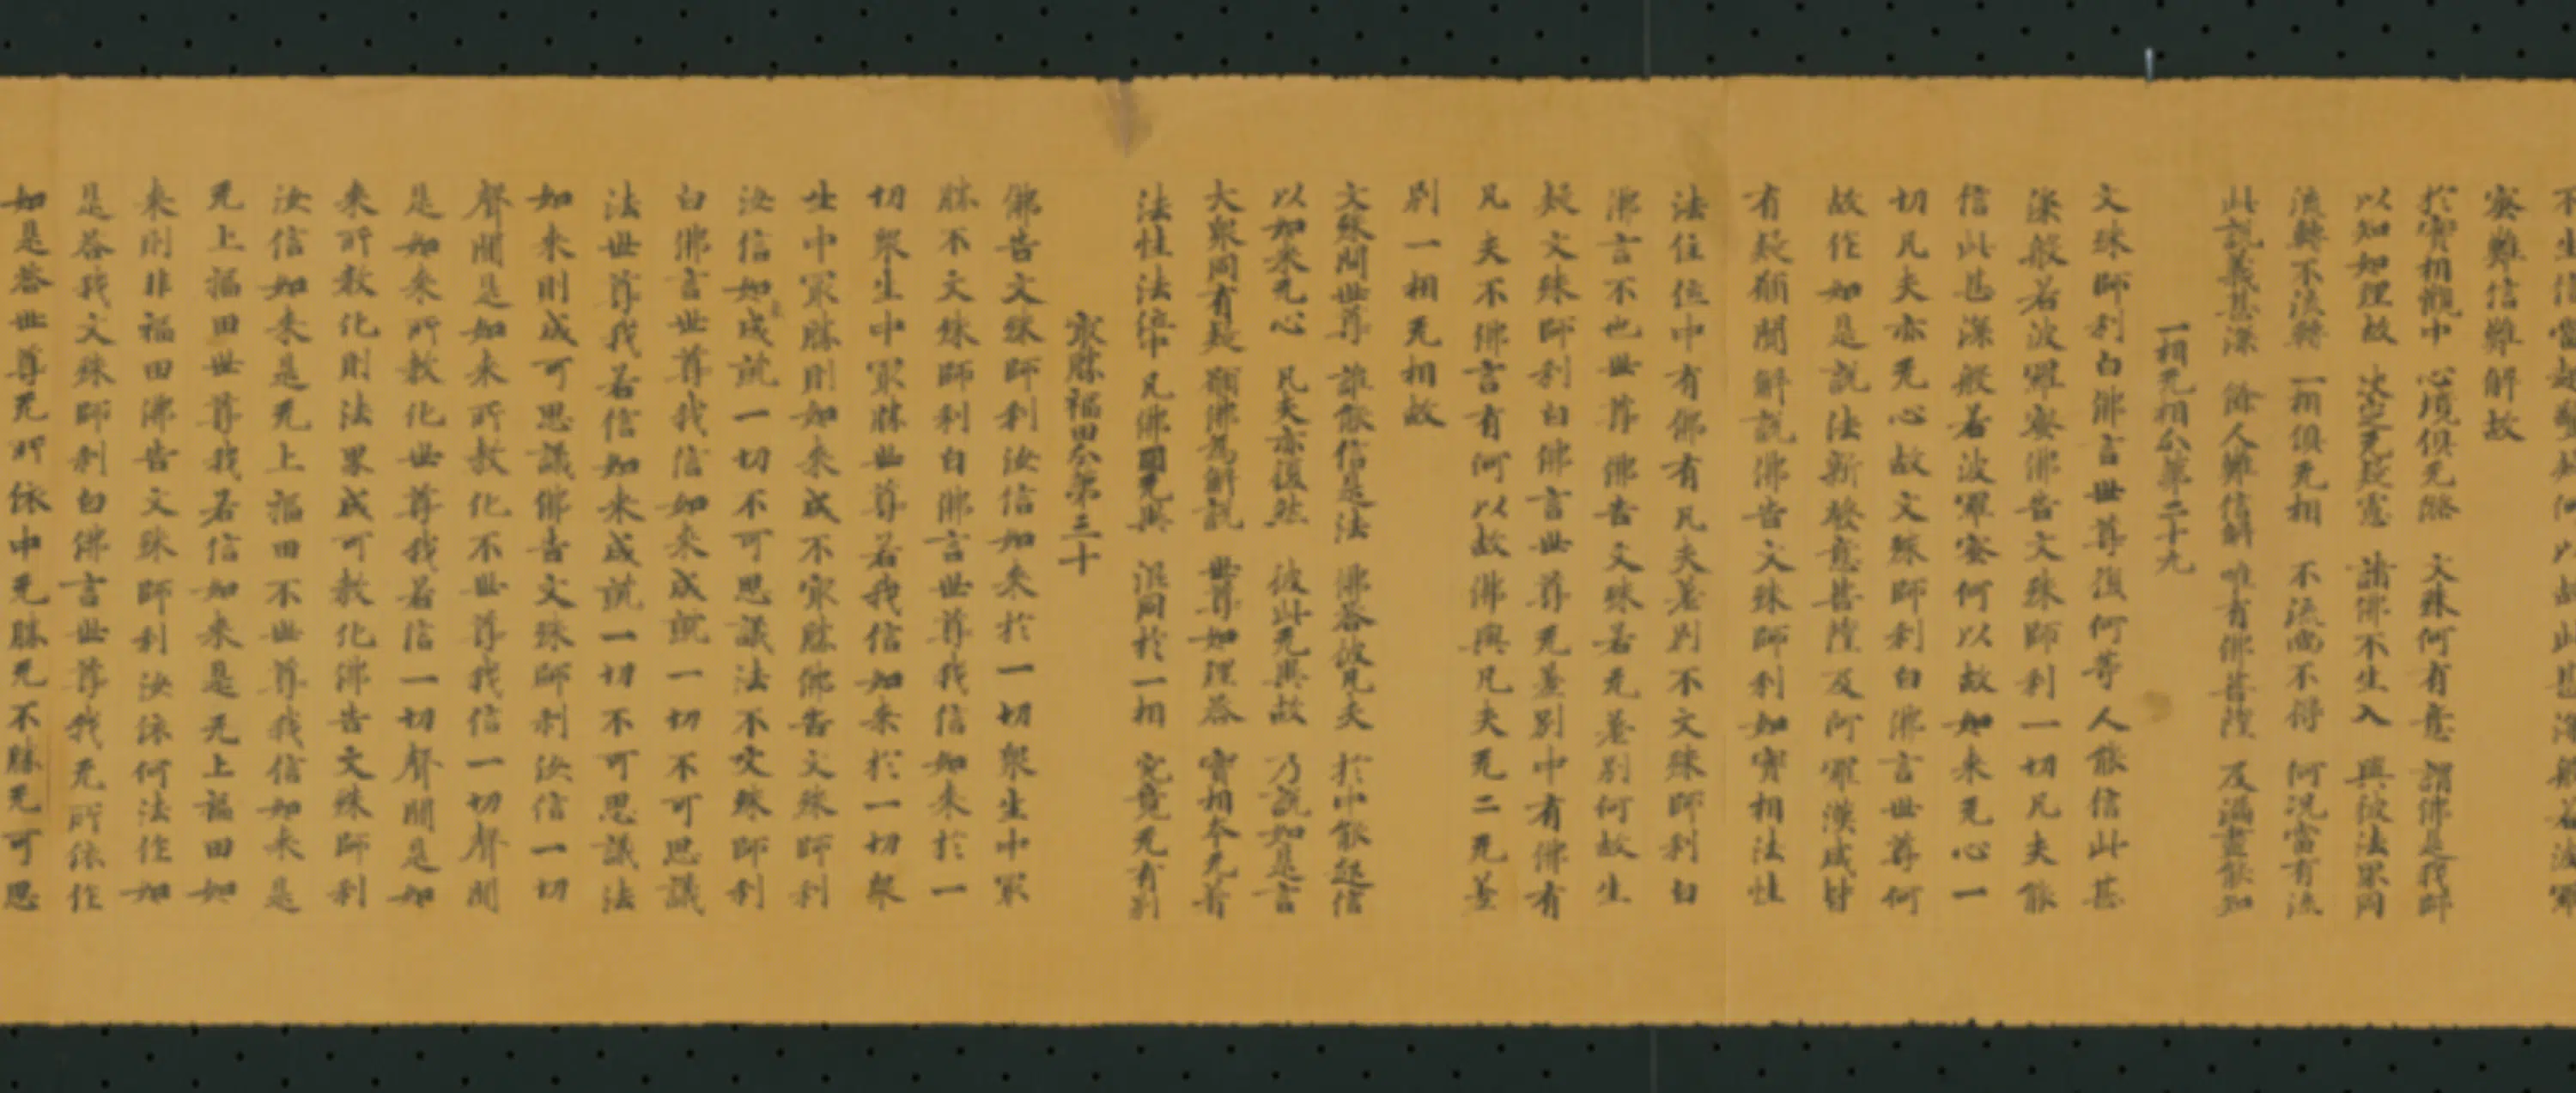 蜜難信難解故
於實相觀中 心境俱无緣 文殊何有意 謂佛是我師
以如如理故 决定无疑慮 諸佛不生入 與彼法界同
流轉不流轉 一相俱无相 不流尚不得 何況當有流
此說義甚深 餘人難信解 唯有佛菩薩 及漏盡能知
一相无相分第二十九
文殊師利白佛言世尊復何等人能信此甚
深般若波羅蜜佛告文殊師利一切凡夫能
信此甚深般若波羅蜜何以故如来无心一
切凡夫亦无心故文殊師利白佛言世尊何
故作如是說法新發意菩薩及阿羅漢咸皆
有疑願聞解說佛告文殊師利如實相法性
法住位中有佛有凡夫差別不文殊師利白
佛言不也世尊佛告文殊若无差別何故生
疑文殊師利白佛言世尊无差別中有佛有
凡夫不佛言有何以故佛與凡夫无二无差
別一相无相故
文殊問世尊 誰能信是法 佛答彼凡夫 於中能起信
以如来无心 凡夫亦復然 彼此无異故 乃說如是言
大衆同有疑 願佛為解說 世尊如理答 實相本无着
法性法位中 凡佛同无異 混同於一相 究竟无有別
冣勝福田分第三十
佛告文殊師利汝信如来於一切衆生中冣
勝不文殊師利白佛言世尊我信如来於一
切衆生中冣勝世尊若我信如来於一切衆
生中冣勝則如来成不冣勝佛告文殊師利
汝信如来成就一切不可思議法不文殊師利
白佛言世尊我信如来成就一切不可思議
法世尊我若信如来成就一切不可思議法
如来則成可思議佛告文殊師利汝信一切
聲聞是如来所教化不世尊我信一切聲聞
是如来所教化世尊我若信一切聲聞是如
来所教化則法界成可教化佛告文殊師利
汝信如来是无上福田不世尊我信如来是
无上福田世尊我若信如来是无上福田如
来則非福田佛告文殊師利汝依何法作如
是答我文殊師利白佛言世尊我无所依作
如是答世尊无所依中无勝无不勝无可思